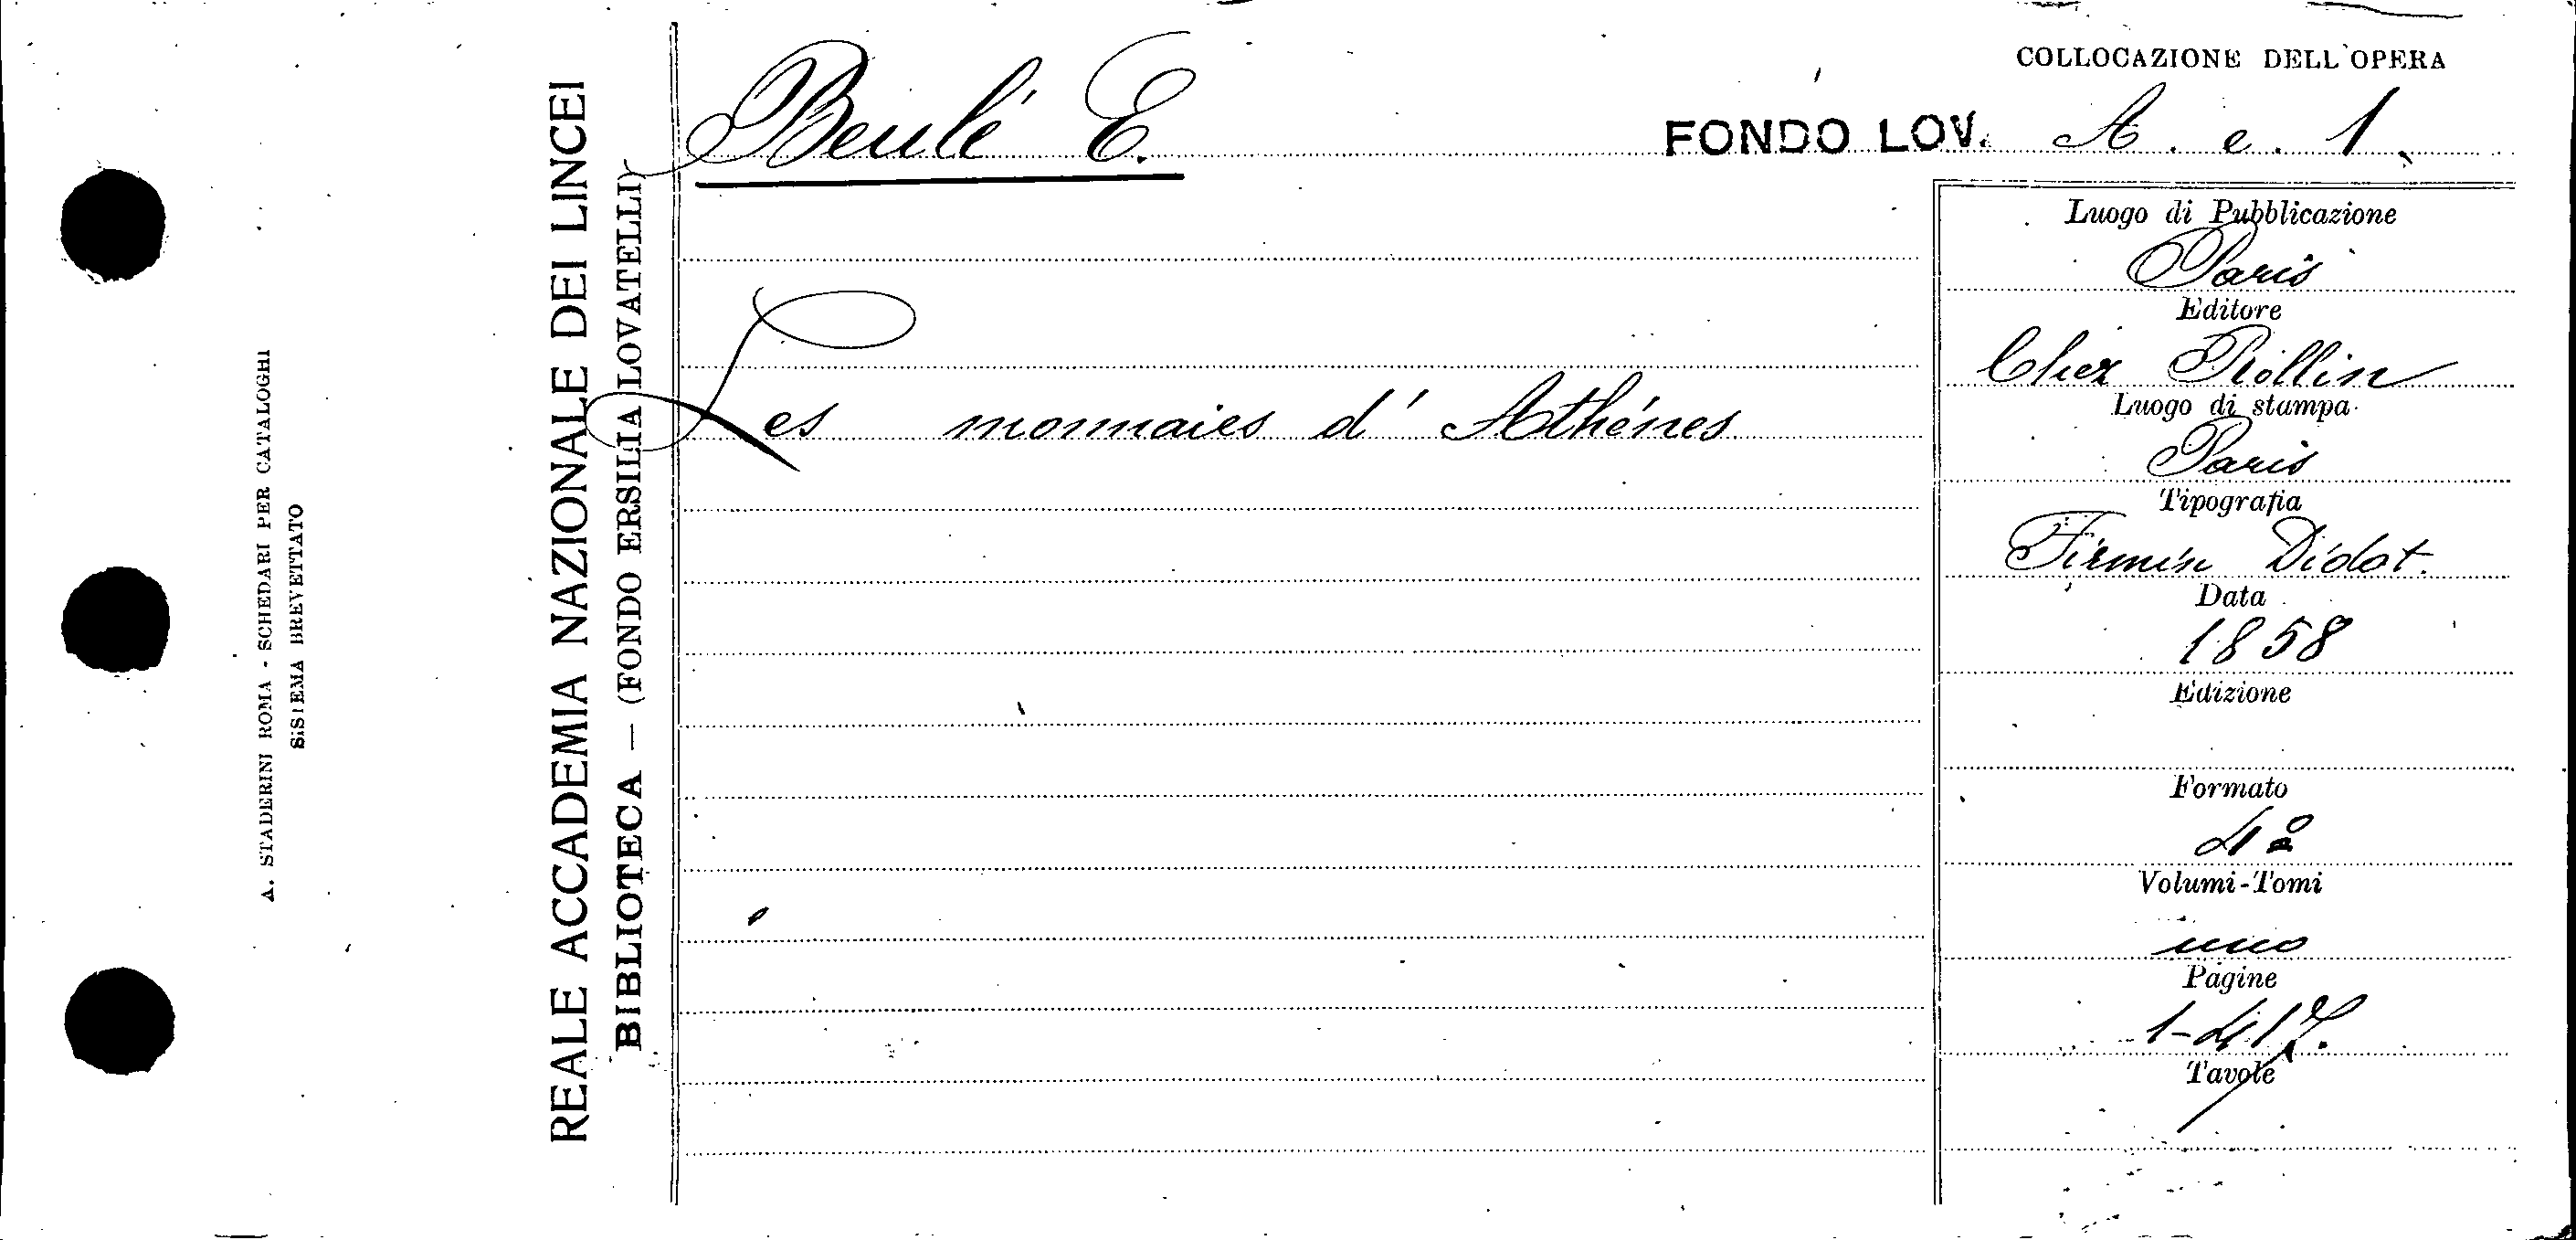 A. STADERINI ROMA - SCHEDARI PER CATALOGHI
SISTEMA BREVETTATO
REALE ACCADEMIA NAZIONALE DEI LINCEI
BIBLIOTECA — (FONDO ERSILIA LOVATELLI)
Beulé E.
COLLOCAZIONE DELL'OPERA
FONDO LOV. A. e. 1.
Les monnaies d'Athénes
Luogo di Pubblicazione
Paris
Editore
Chez Rollin
Luogo di stampa
Paris
Tipografia
Firmin Didot.
Data
1858
Edizione
Formato
4°
Volumi-Tomi
uno
Pagine
1-417.
Tavole